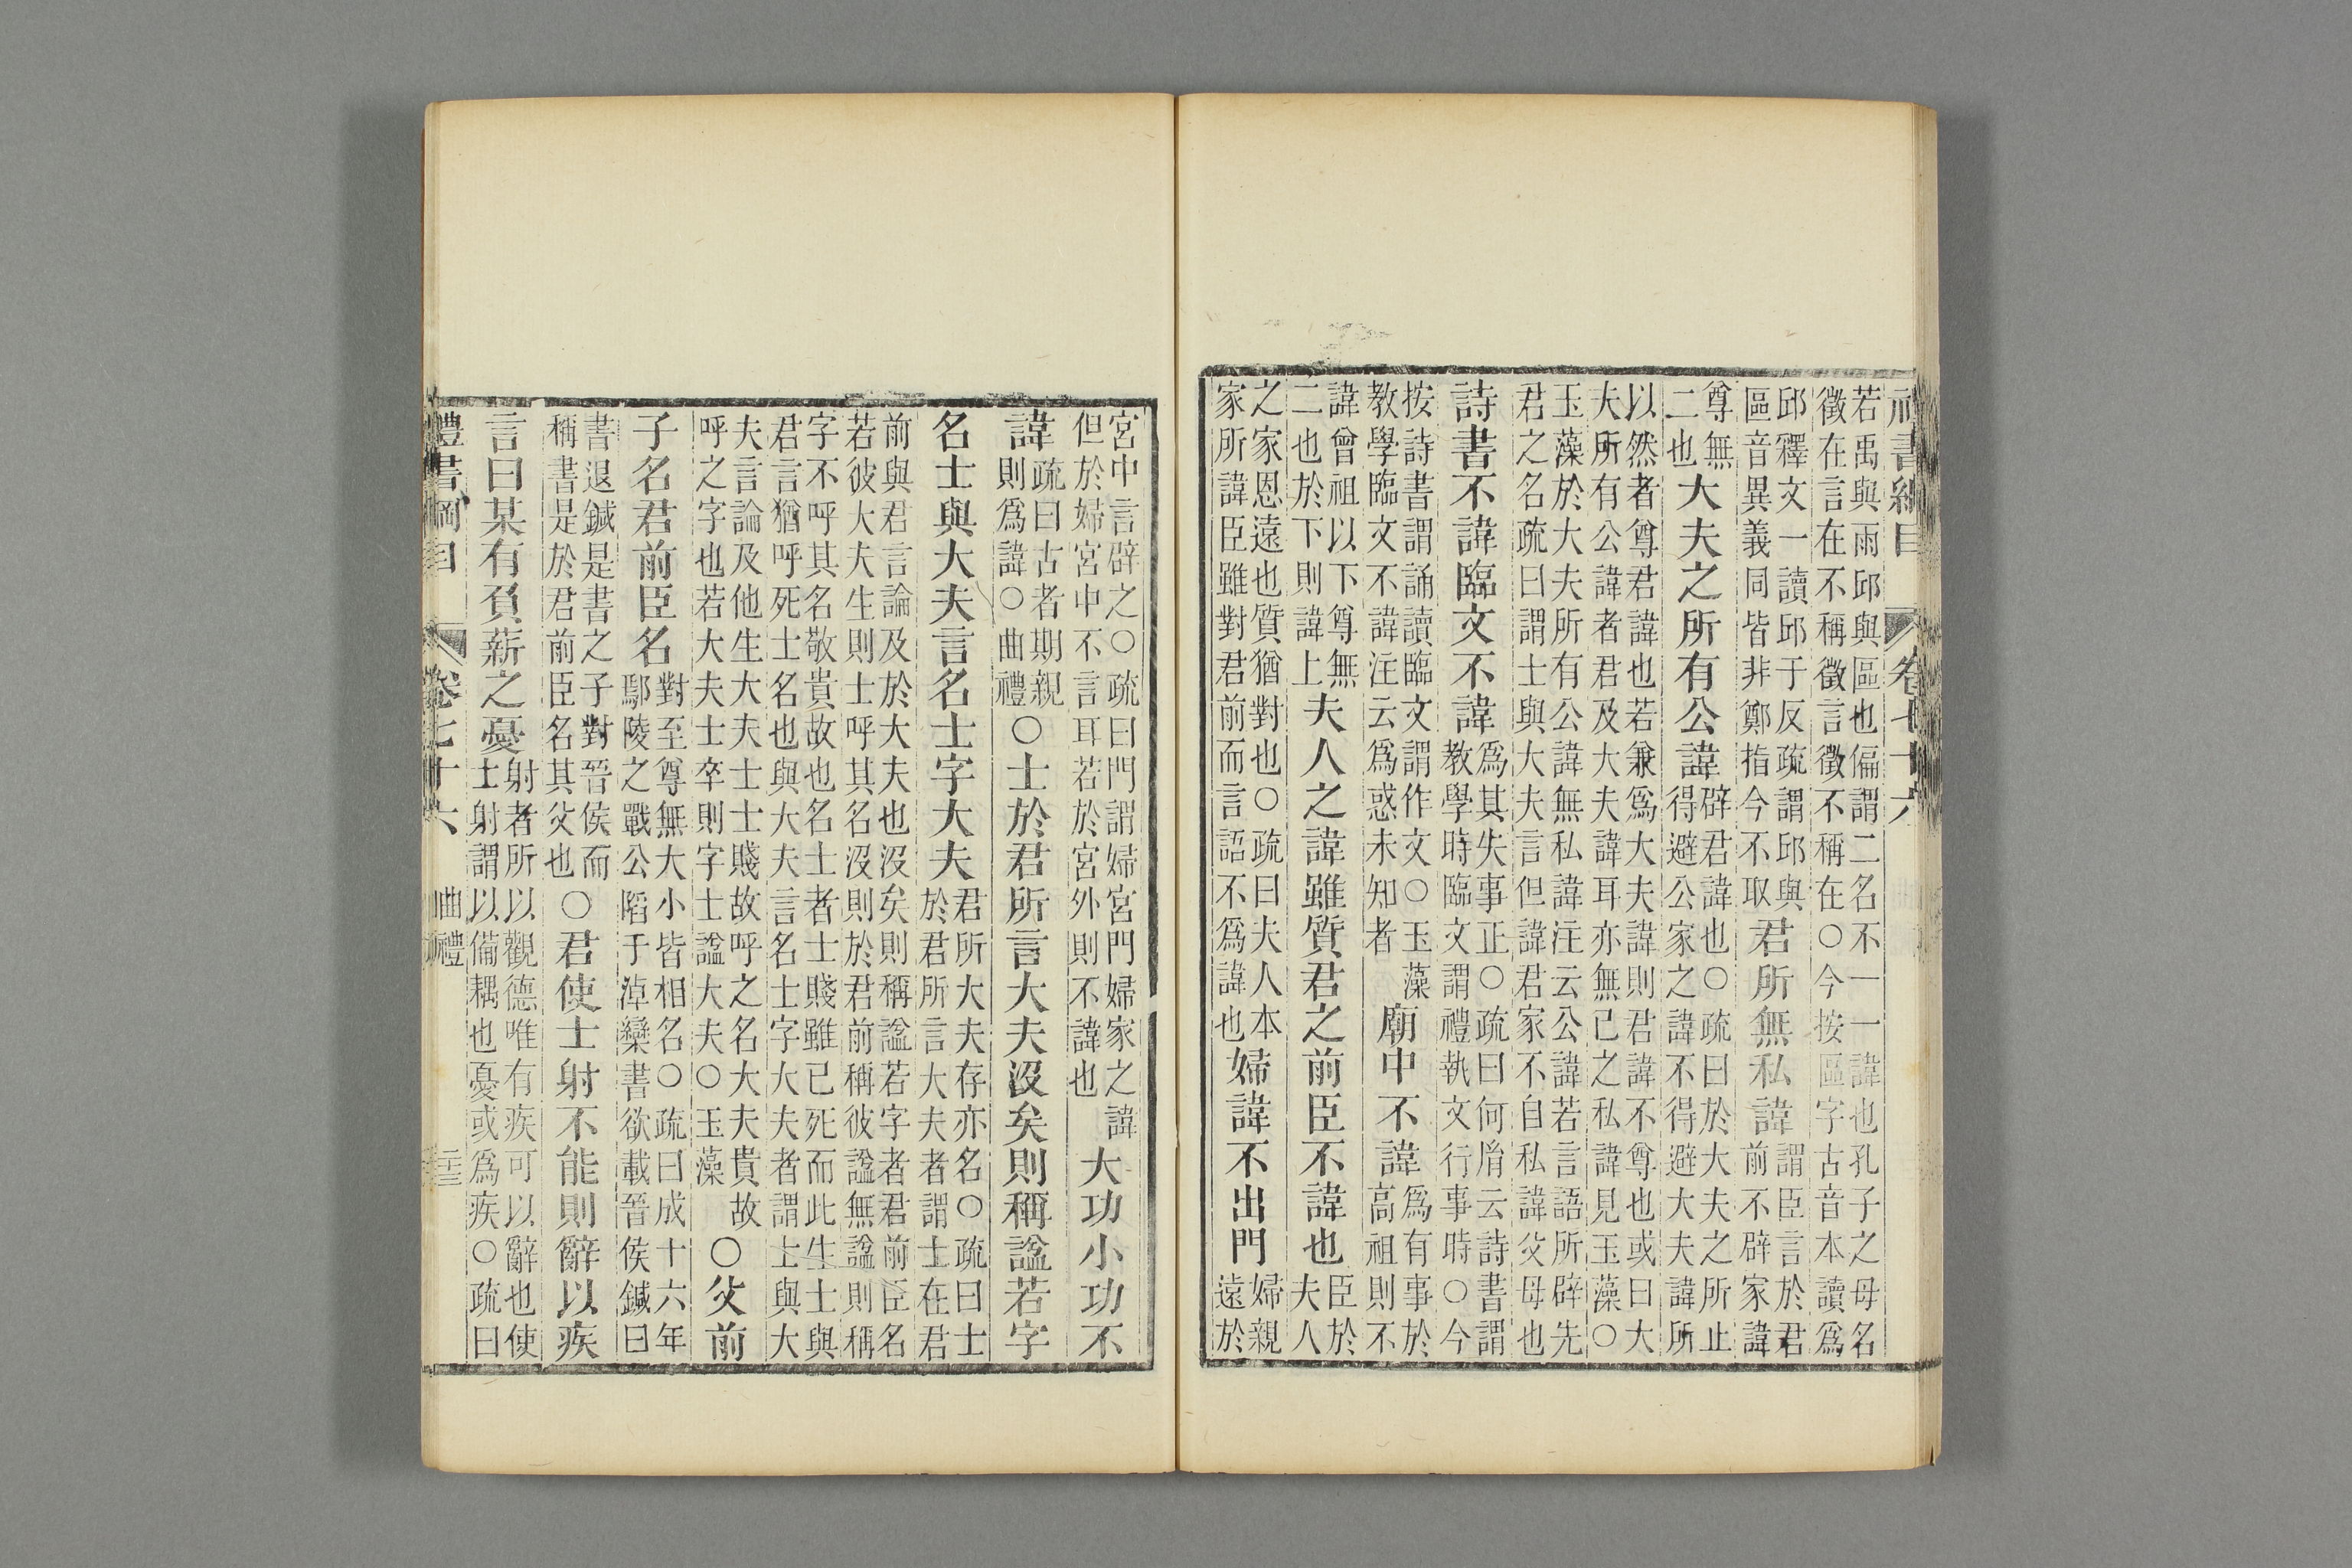 禮書綱目 卷七十六
若禹與雨邱與區也偏謂二名不一一諱也孔子之母名
徵在言在不稱徵言徵不稱在○今按區字古音本讀爲
邱釋文一讀邱于反疏謂邱與
區音異義同皆非鄭指今不取
君所無私諱
謂臣言於君
前不辟家諱
尊無
二也
大夫之所有公諱
辟君諱也○疏曰於大夫之所止
得避公家之諱不得避大夫諱所
以然者尊君諱也若兼爲大夫諱則君諱不尊也或曰大
夫所有公諱者君及大夫諱耳亦無己之私諱見玉藻○
玉藻於大夫所有公諱無私諱注云公諱若言語所辟先
君之名疏曰謂士與大夫言但諱君家不自私諱父母也
詩書不諱臨文不諱
爲其失事正○疏曰何胤云詩書謂
教學時臨文謂禮執文行事時○今
按詩書謂誦讀臨文謂作文○玉藻
教學臨文不諱注云爲惑未知者
廟中不諱
爲有事於
高祖則不
諱曾祖以下尊無
二也於下則諱上
夫人之諱雖質君之前臣不諱也
臣於
夫人
之家恩遠也質猶對也○疏曰夫人本
家所諱臣雖對君前而言語不爲諱也
婦諱不出門
婦親
遠於
宮中言辟之○疏曰門謂婦宮門婦家之諱
但於婦宮中不言耳若於宮外則不諱也
大功小功不
諱
疏曰古者期親
則爲諱○曲禮
○士於君所言大夫沒矣則稱諡若字
名士與大夫言名士字大夫
君所大夫存亦名○疏曰士
於君所言大夫者謂士在君
前與君言論及於大夫也沒矣則稱諡若字者君前臣名
若彼大夫生則士呼其名沒則於君前稱彼諡無諡則稱
字不呼其名敬貴故也名士者士賤雖已死而此生士與
君言猶呼死士名也與大夫言名士字大夫者謂士與大
夫言論及他生大夫士士賤故呼之名大夫貴故
呼之字也若大夫士卒則字士諡大夫○玉藻
○父前
子名君前臣名
對至尊無大小皆相名○疏曰成十六年
鄢陵之戰公陷于淖欒書欲載晉侯鍼曰
書退鍼是書之子對晉侯而
稱書是於君前臣名其父也
○君使士射不能則辭以疾
言曰某有負薪之憂
射者所以觀德唯有疾可以辭也使
士射謂以備耦也憂或爲疾○疏曰
禮書綱目 卷七十六 曲禮